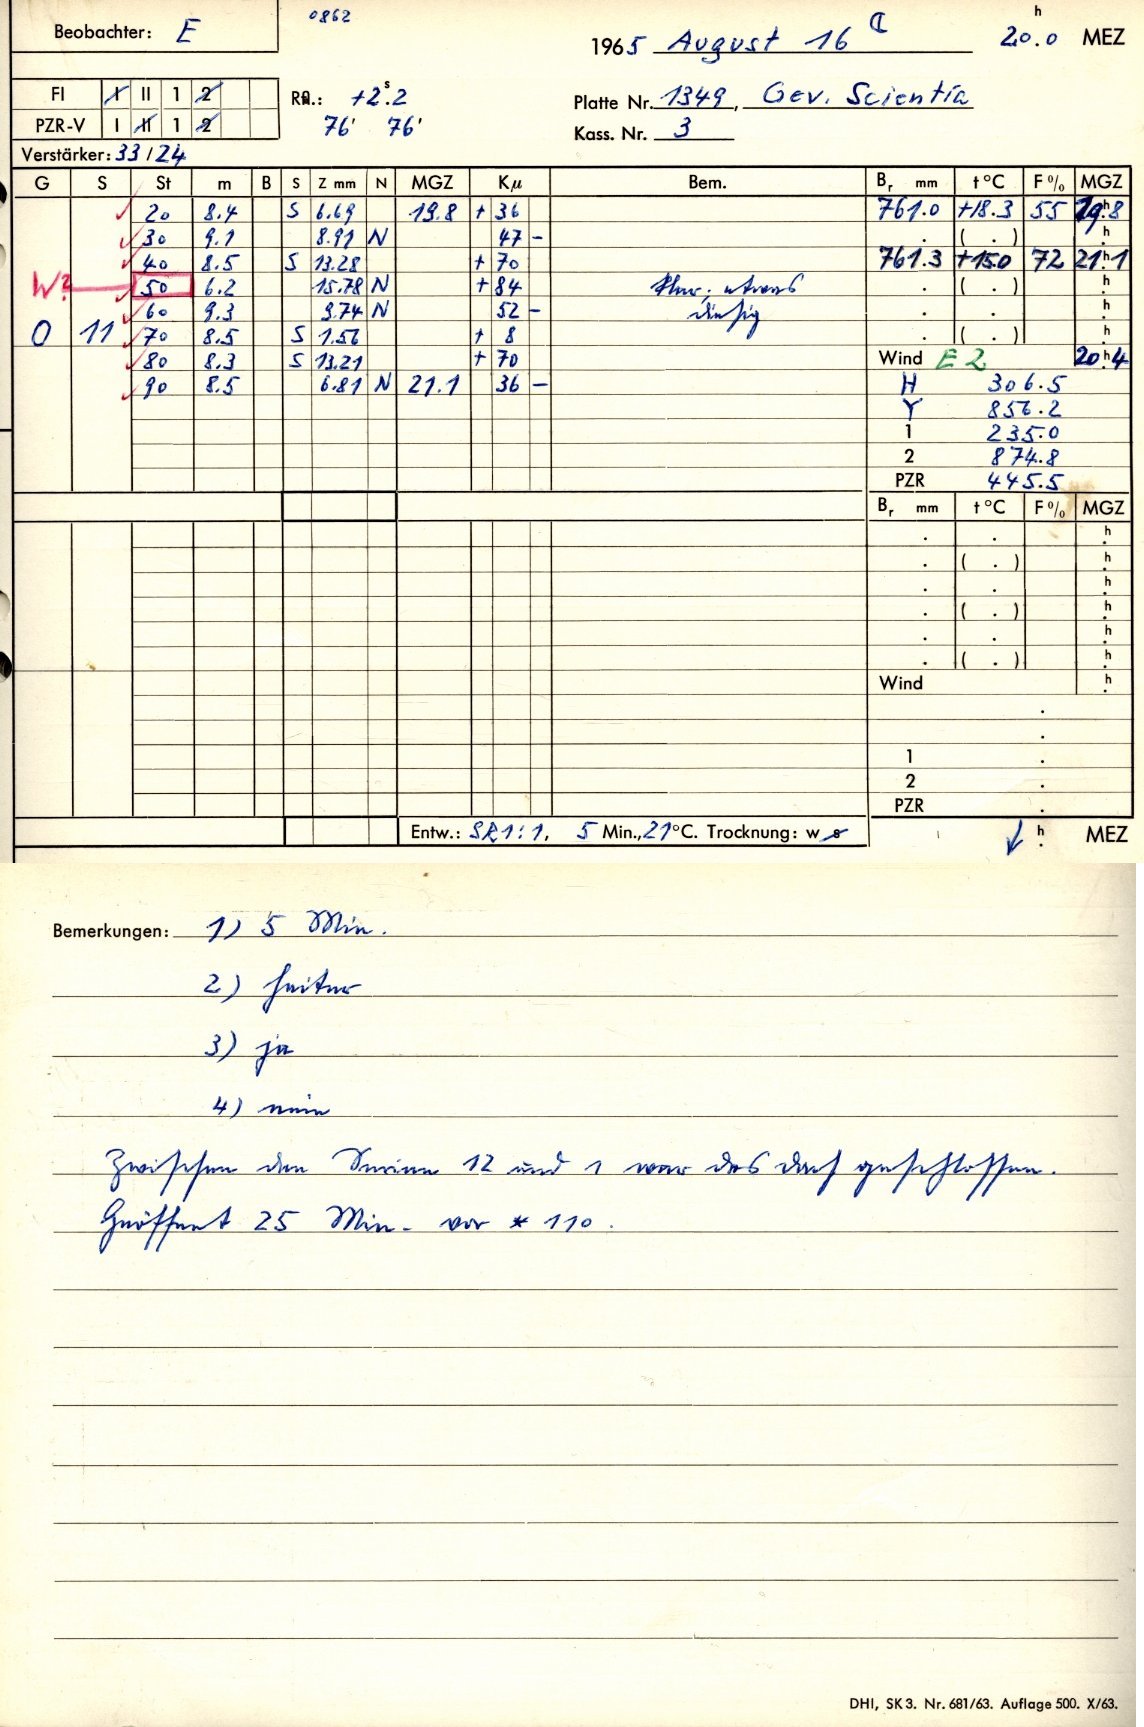 Beobachter: E
0862
1965 August 16
20.0 h MEZ
FI I II 1 2
PZR-V I II 1 2
+2.2 s
76' 76'
Platte Nr. 1349, Gev. Scientia
Kass. Nr. 3
Verstärker: 33/24
G S St m B S Z mm N MGZ Kμ Bem. Br mm t °C F % MGZ
20 8.4 S 6.69 19.8 + 36 761.0 +18.3 55 19.8 h
30 9.1 8.91 N 47 - . ( . ) h
40 8.5 S 13.28 + 70 761.3 +15.0 72 21.1 h
W? 50 6.2 15.78 N + 84 etwas . ( . ) h
60 9.3 9.74 N 52 - diesig . . h
0 11 70 8.5 S 1.56 + 8 . ( . ) h
80 8.3 S 13.21 + 70 Wind E 2 20.4 h
90 8.5 6.81 N 21.1 36 - H 306.5
Y 856.2
1 235.0
2 874.8
PZR 445.5
Br mm t °C F % MGZ
. . h
. ( . ) h
. . h
. ( . ) h
. . h
. ( . ) h
Wind h
.
.
1 .
2 .
PZR .
Entw.: SR 1:1, 5 Min., 21 °C. Trocknung: w s
h MEZ
Bemerkungen: 1) 5 Min.
2) heiter
3) ja
4) nein
Zwischen den Serien 12 und 1 war das Dach geschlossen.
Geöffnet 25 Min. vor * 110.
DHI, SK 3. Nr. 681/63. Auflage 500. X/63.